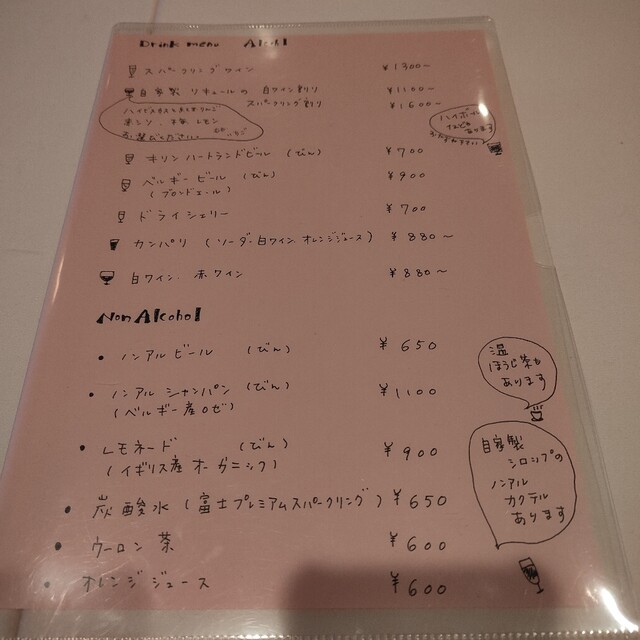 Drink menu Alcohl
スパークリングワイン ¥1300〜
自家製 リキュールの 白ワイン割り ¥1100〜
スパークリング割り ¥1600〜
お選びください。
ハイボール
なども
あります
キリン ハートランドビール (びん) ¥700
ベルギー ビール (びん) ¥900
(ブロンドエール)
ドライシェリー ¥700
カンパリ (ソーダ・白ワイン オレンジジュース) ¥880〜
白ワイン・赤ワイン ¥880〜
Non Alcohol
• ノンアル ビール (びん) ¥650
温
ほうじ茶も
あります
• ノンアル シャンパン (びん) ¥1100
(ベルギー産ロゼ)
• レモネード (びん) ¥900
(イギリス産オーガニック)
自家製
シロップの
ノンアル
カクテル
あります
• 炭酸水 (富士プレミアムスパークリング) ¥650
• ウーロン茶 ¥600
• オレンジジュース ¥600